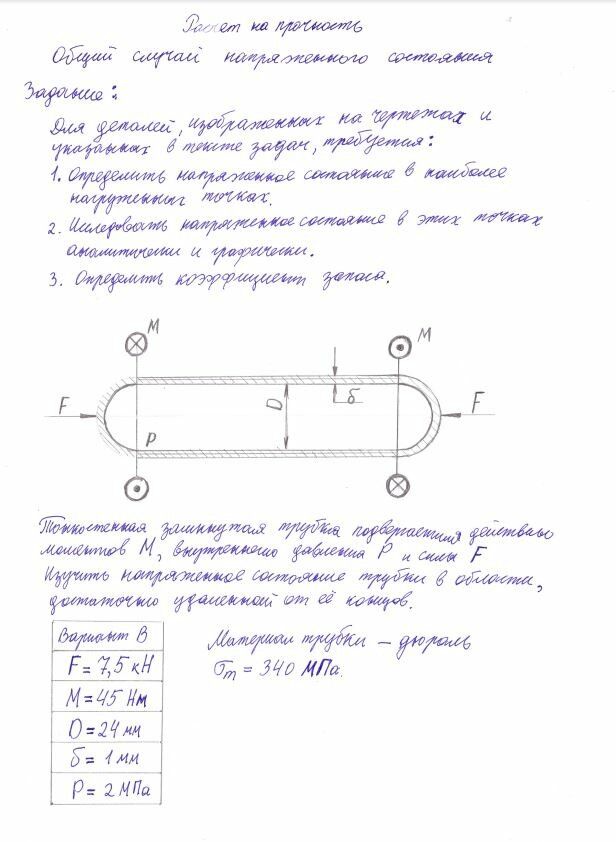 Расчет на прочность
Общий случай напряженного состояния
Задание:
Для деталей, изображенных на чертежах и
указанных в тексте задач, требуется:
1. Определить напряженное состояние в наиболее
нагруженных точках.
2. Исследовать напряженное состояние в этих точках
аналитически и графически.
3. Определить коэффициент запаса.
M
M
F
D
δ
F
P
Тонкостенная замкнутая трубка подвергается действию
моментов M, внутреннего давления P и силы F
Изучить напряженное состояние трубки в области,
достаточно удаленной от её концов.
Вариант В
F = 7,5 кН
M = 45 Нм
D = 24 мм
δ = 1 мм
P = 2 МПа
Материал трубки – дюраль
σт = 340 МПа.